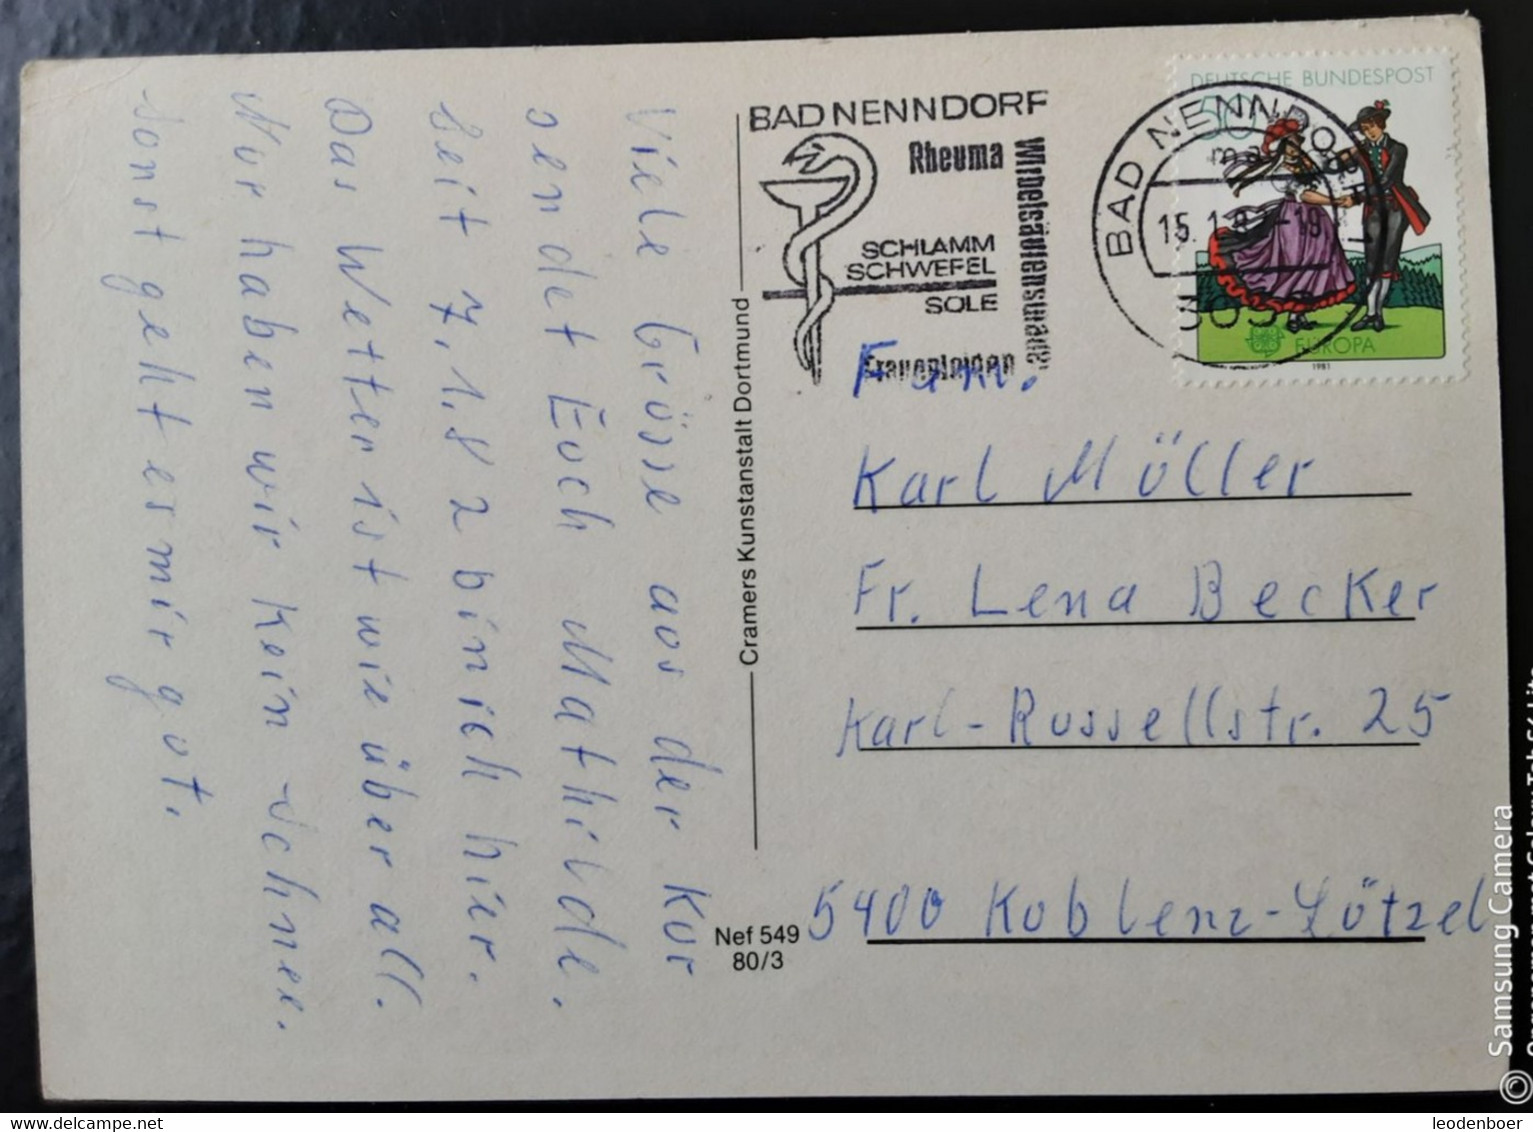 Viele Grüsse aus der Kur
sendet Euch Mathilde.
Seit 7.1.82 bin ich hier.
Das Wetter ist wie überall.
Nur haben wir kein Schnee.
Sonst geht es mir gut.
Cramers Kunstanstalt Dortmund
Nef 549
80/3
BAD NENNDORF
Rheuma
Wirbelsäulensyndrome
SCHLAMM
SCHWEFEL
SOLE
Frauenleiden
BAD NENNDORF
15.1.8
DEUTSCHE BUNDESPOST
50
EUROPA
1981
Fam.
Karl Müller
Fr. Lena Becker
Karl-Russellstr. 25
5400 Koblenz-Lützel
Samsung Camera
leodenboer